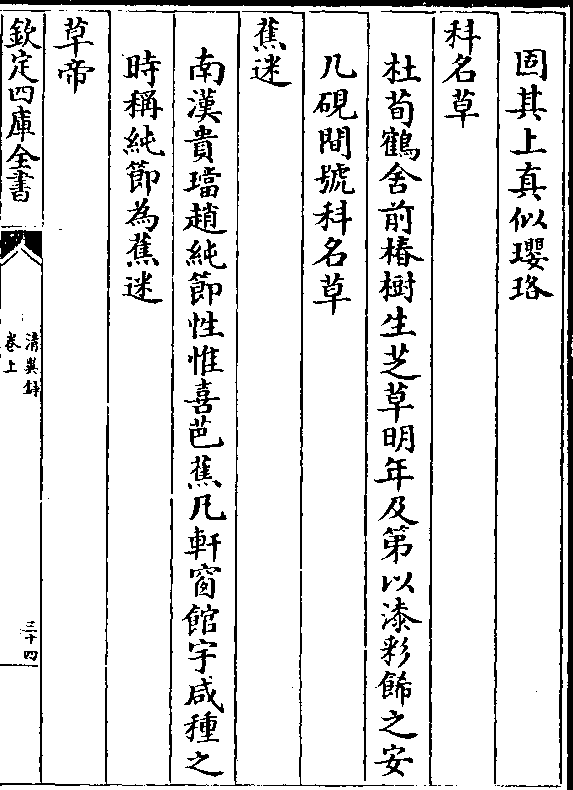 固其上真似瓔珞
科名草
杜荀鶴舍前椿樹生芝草明年及第以漆彩飾之安
几硯間號科名草
蕉迷
南漢貴璫趙純節性惟喜芭蕉凡軒窗館宇咸種之
時稱純節為蕉迷
草帝
欽定四庫全書
清異錄
卷上
三十四